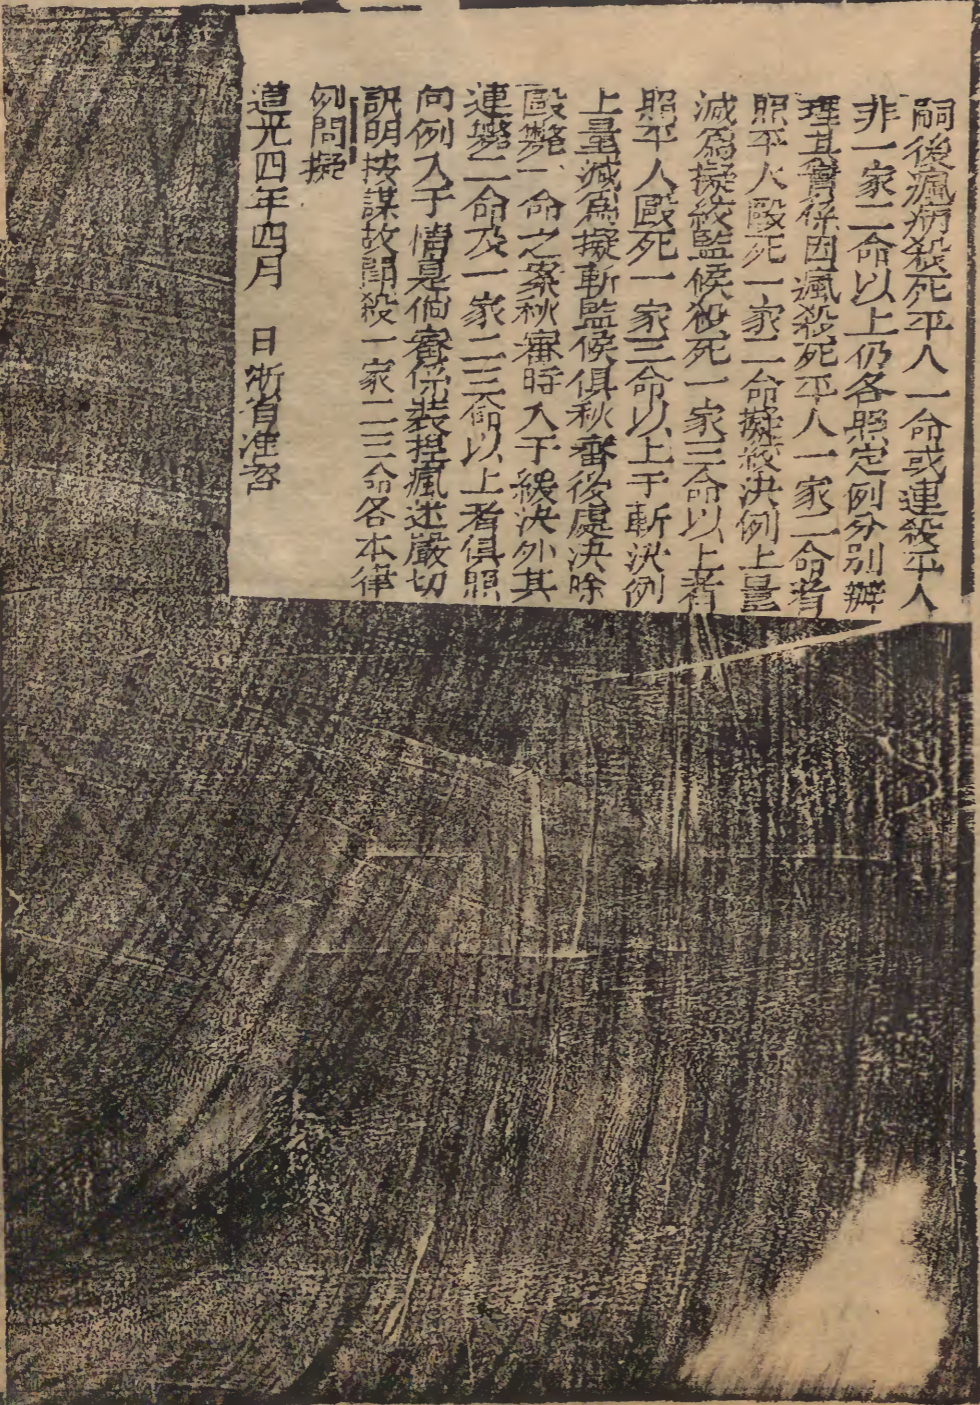 嗣後瘋病殺死平人一命或連殺平人
非一家二命以上仍各照定例分別辦
理其實係因瘋殺死平人一家二命者
照平人毆死一家二命擬絞決例上量
減爲擬絞監候殺死一家三命以上者
照平人毆死一家三命以上于斬決例
上量減爲擬斬監候俱秋審後處決除
毆斃一命之案秋審時入于緩决外其
連斃二命及一家二三命以上者俱照
向例入于情是個實係裝捏瘋迷嚴切
訊明按謀故鬬殺一家二三命各本律
例問擬
道光四年四月 日浙省准咨